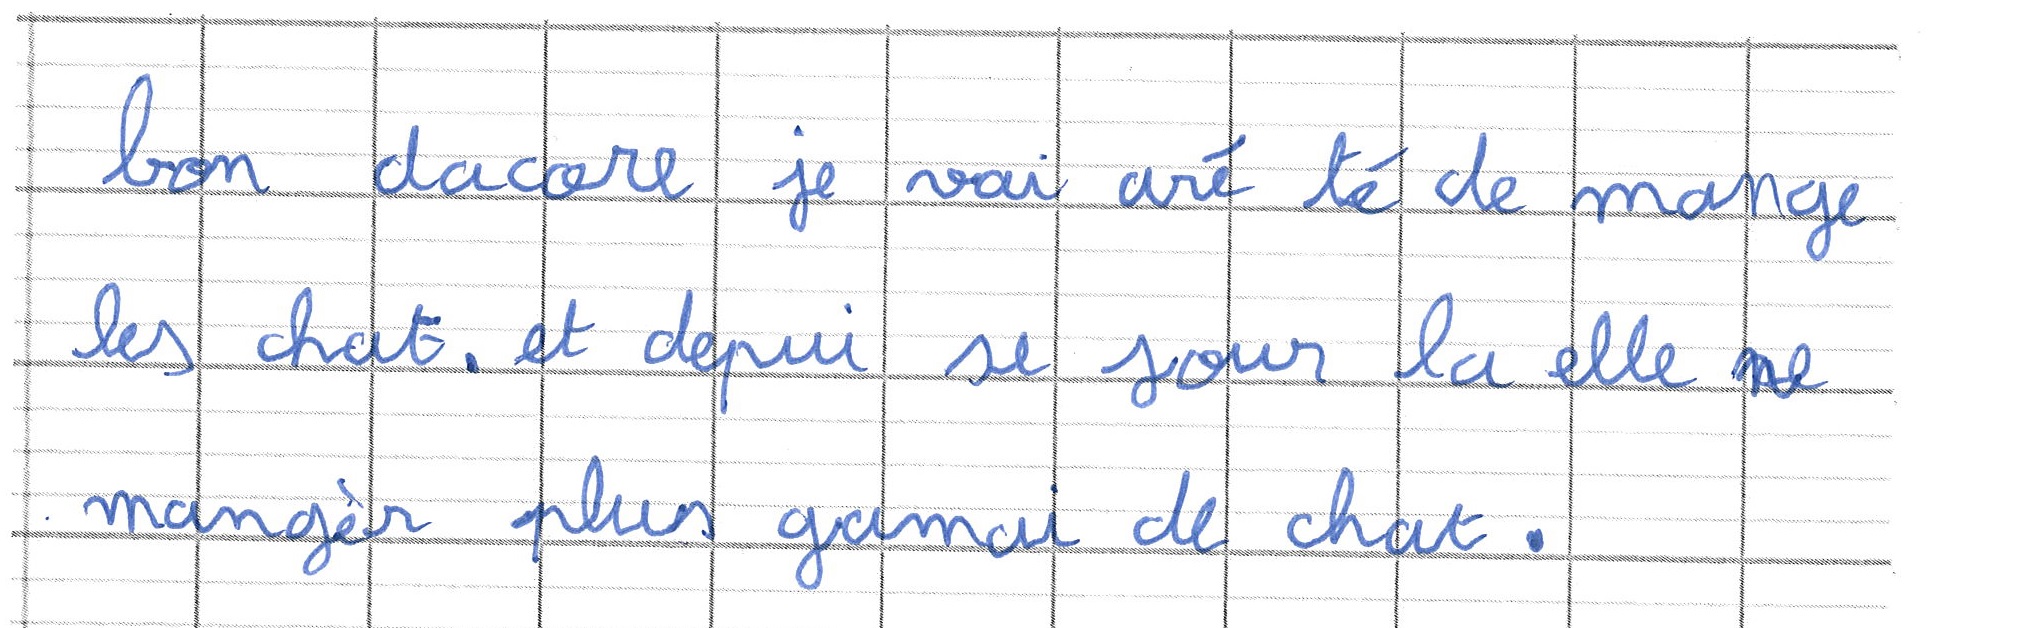 bon dacore je vai aré té de mange
les chat. et depui se jour la elle ne
mangèr plus gamai de chat.